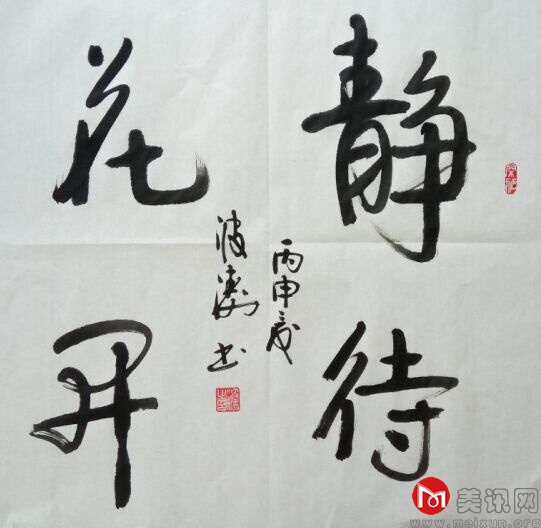 静待
花开
丙申夏
波涛书
美讯网
www.meixun.org